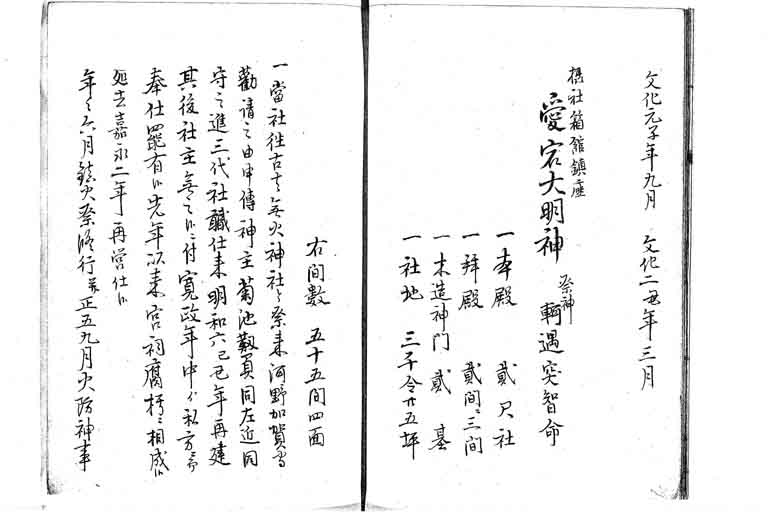 文化元子年九月　文化二丑年三月
摂社箱館鎮座
愛宕大明神　祭神　軻遇突智命
一本殿　貳尺社
一拜殿　貳間ニ三間
一木造神門　貳基
一社地　三千令廿五坪
右間數　五十五間四面
一當社往古ゟ無火神社ニ祭来河野加賀守
勸請之由申傳神主菊池 同左近同
守之進三代社職仕来明和六己丑年再建
其後社主無之ニ付寛政年中ゟ私方ニ而
奉仕罷有候先年以来宮祠腐朽ニ相成候
処去嘉永二年再営仕候
年々六月鎮火祭修行并正五九月火防神事